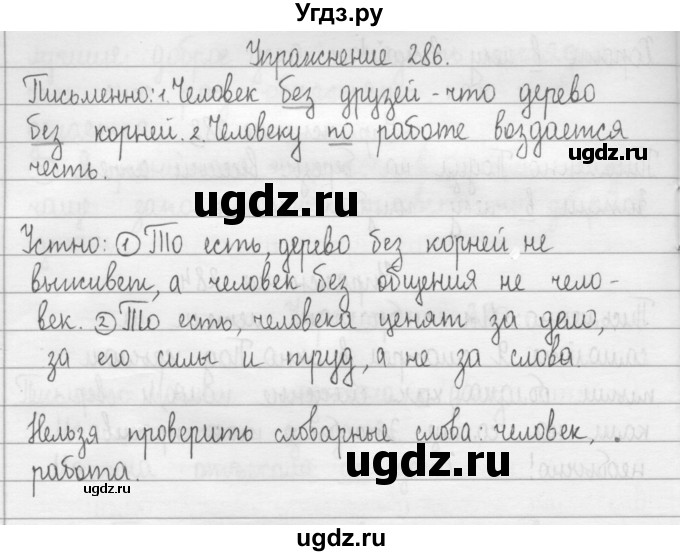 Угдз.ру
Упражнение 286.
Письменно: 1. Человек без друзей - что дерево
без корней. 2. Человеку по работе воздается
честь.
ugdz.ru
ugdz.ru
ugdz.ru
Устно: ① То есть, дерево без корней не
выживет, а человек без общения не чело-
век. ② То есть, человека ценят за дело,
за его силы и труд, а не за слова.
Нельзя проверить словарные слова человек,
работа.
ugdz.ru
ugdz.ru
ugdz.ru
ugdz.ru